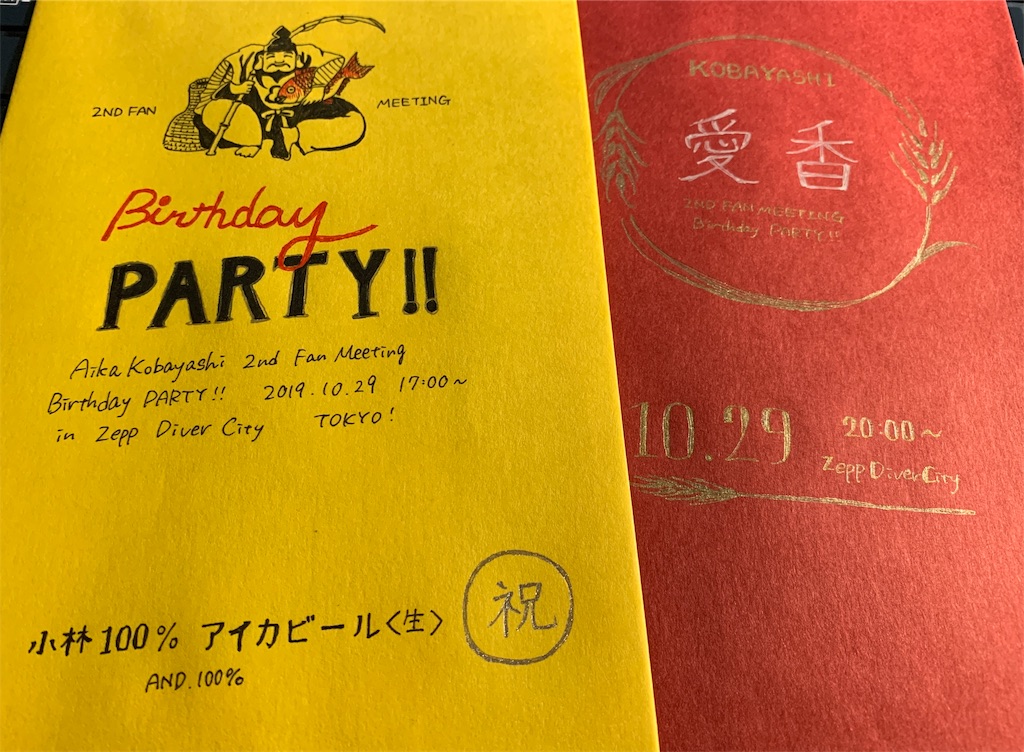 2ND FAN MEETING
Birthday
PARTY!!
Aika Kobayashi 2nd Fan Meeting
Birthday PARTY!! 2019.10.29 17:00~
in Zepp Diver City TOKYO!
小林100% アイカビール〈生〉
AND.100%
祝
KOBAYASHI
愛香
2ND FAN MEETING
Birthday PARTY!!
10.29 20:00~
Zepp DiverCity